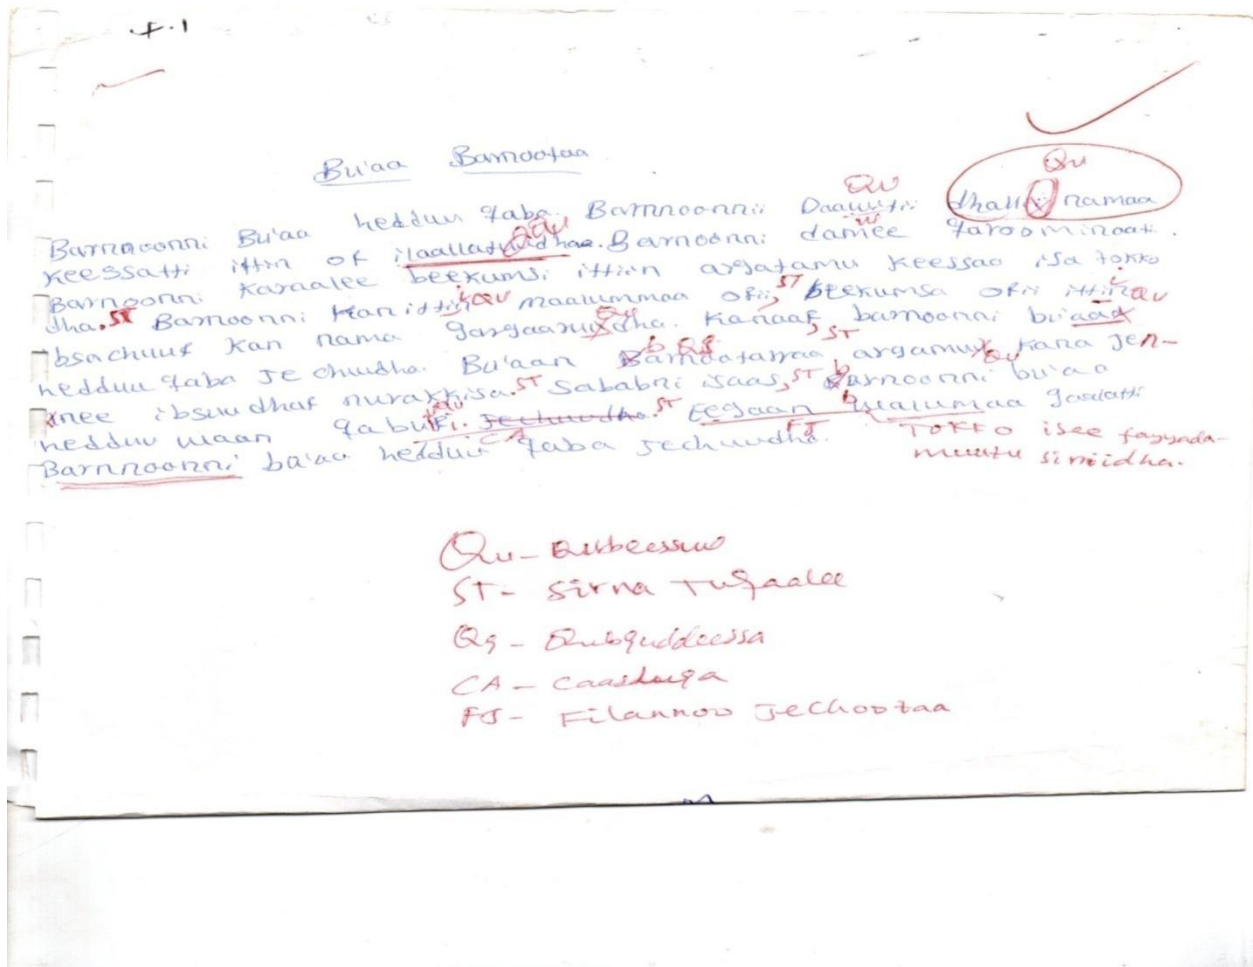 F.1
Bu'aa Barnootaa
Qu Qu
Barnnoonni Bu'aa hedduu qaba. Barnnoonnii Daawwitii dhallii namaa
keessatti ittin of ilaallatuudhaa. Barnoonni damee
Barnoonni Karaalee beekumsi ittiin argatamu keessaa isa tokko
dha. ST Barnoonni Kan ittiin Qu maalummaa ofii, ST beekumsa ofii ittiin Qu
ibsachuuf Kan nama gargaaruudha. Kanaaf, ST barnoonni bu'aa
hedduu qaba Jechuudha. Bu'aan Barnootarraa argamu Qu kana Jen-
nee ibsuudhaf nurakkisa. ST Sababni isaas, ST barnoonni bu'aa
hedduu waan qabufi. Jechuudha. ST Eegaan walumaa galatti
CA FJ
Barnnoonni bu'aa hedduu qaba Jechuudha. Tokko isee
Qu - Qubeessuu
ST - Sirna Tuqaalee
Qg - Qubguddeessa
CA - Caasluga
FJ - Filannoo Jechootaa